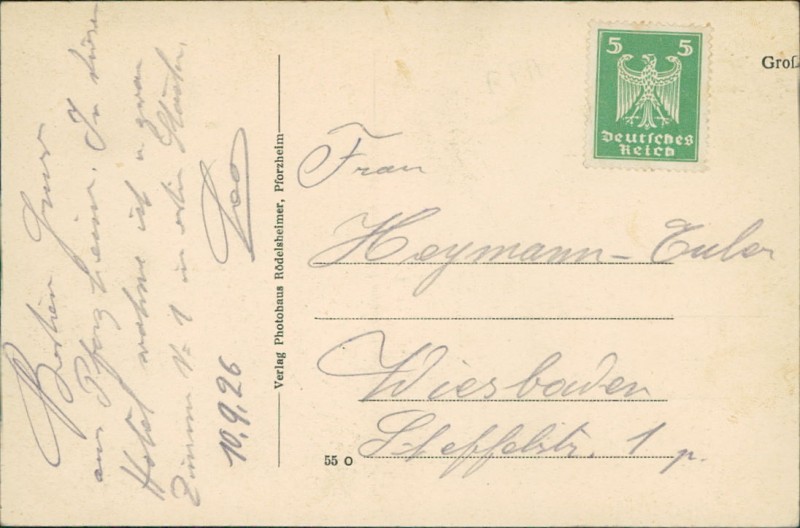 Besten Gruss
aus Pforzheim. In diesem
Hotel wohne ich u. zwar
Zimmer Nr 1 im ersten
Leo
10.9.26
Verlag Photohaus Rödelsheimer, Pforzheim
55 O
5 5
Deutsches
Reich
Groß
Frau
Heymann-Euler
Wiesbaden
Scheffelstr. 1 p.